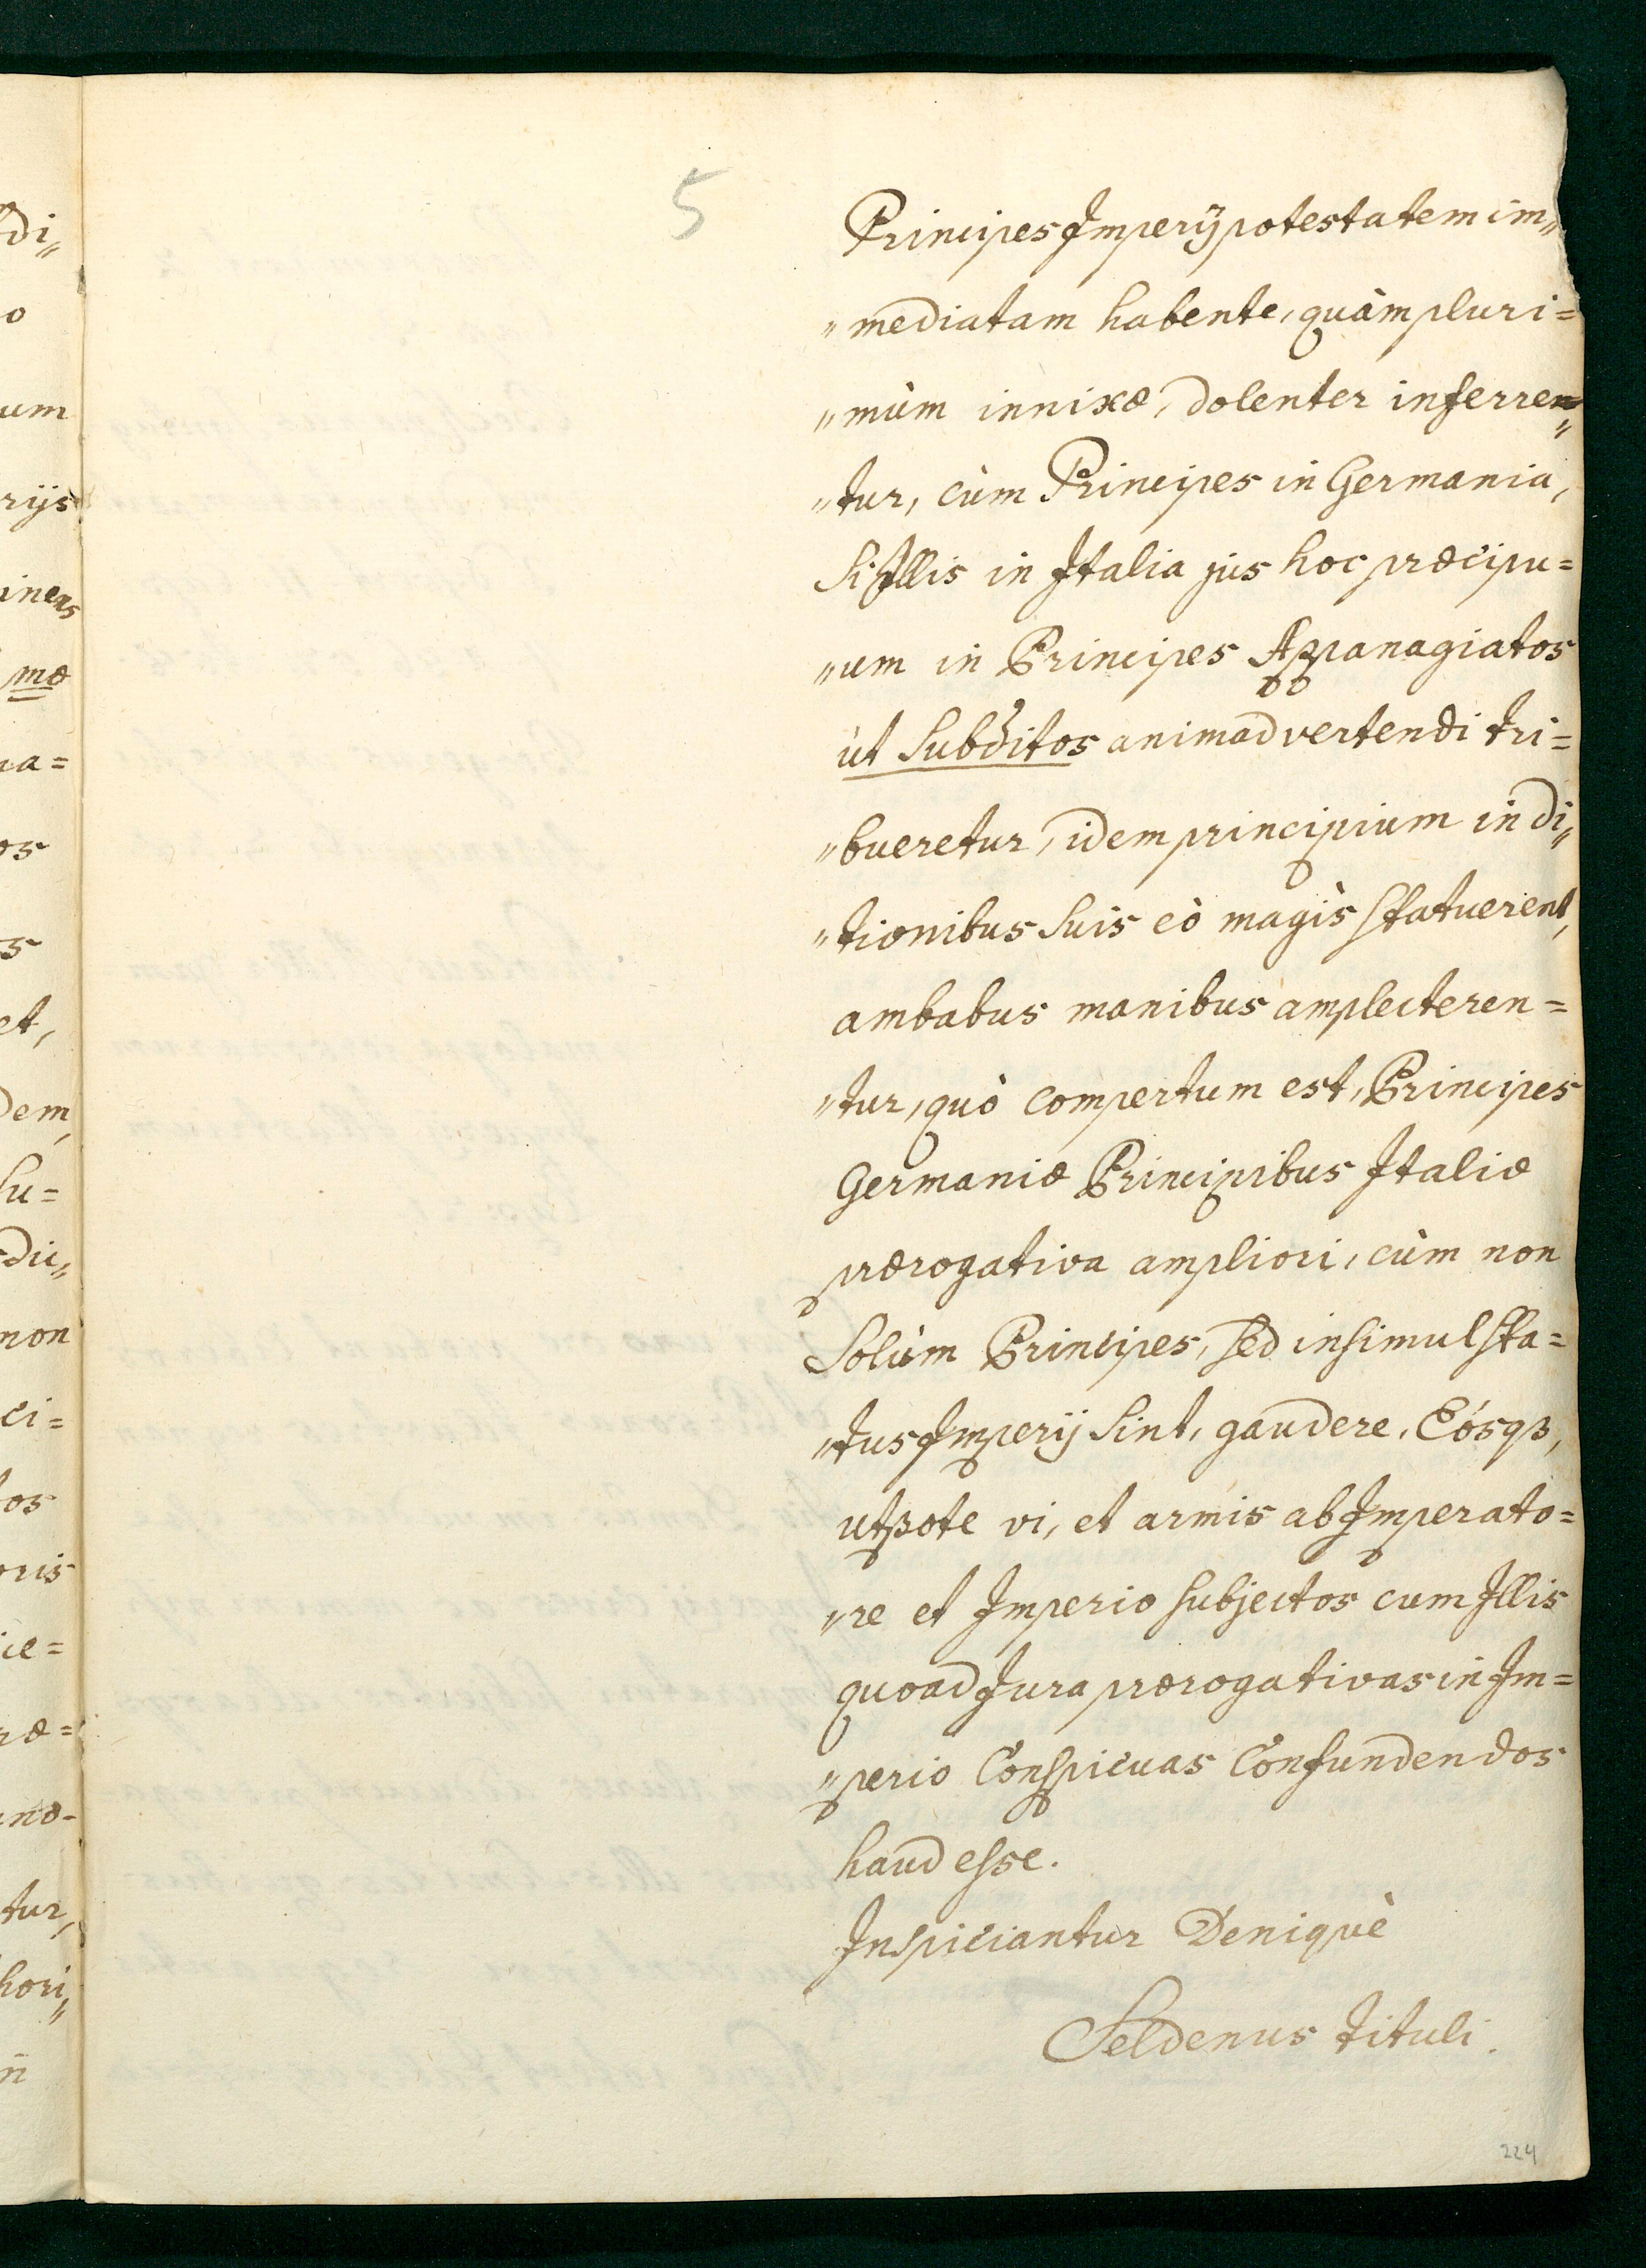 5
Principes Imperij potestatem im„
„mediatam habente, quàm pluri=
„mùm innixæ, dolenter inferren„
„tur, cùm Principes in Germania,
Si Illis in Italia jus hoc præcipu=
„um in Principes Appanagiatos
ùt Subditos animadvertendi tri=
„bueretur, idem principium in di„
„tionibus Suis eò magìs statuerent,
ambabus manibus amplecteren=
„tur, quò compertum est, Principes
Germaniæ Principibus Italiæ
prærogativa ampliori, cùm non
Solùm Principes, sed insimul sta=
„tus Imperij Sint, gaudere, Eósqɜ,
utpote vi, et armis ab Imperato=
„re et Imperio subjectos cum Illis
quoad Jura prærogativas in Im=
„perio Conspicuas Confundendos
haud esse.
Inspiciantur Deniquè
Seldenus tituli.
224
di„
o
um
rijs
mæ
na=
os
s
et,
dem,
su=
non
ci=
tos
oris
tur,
hori„